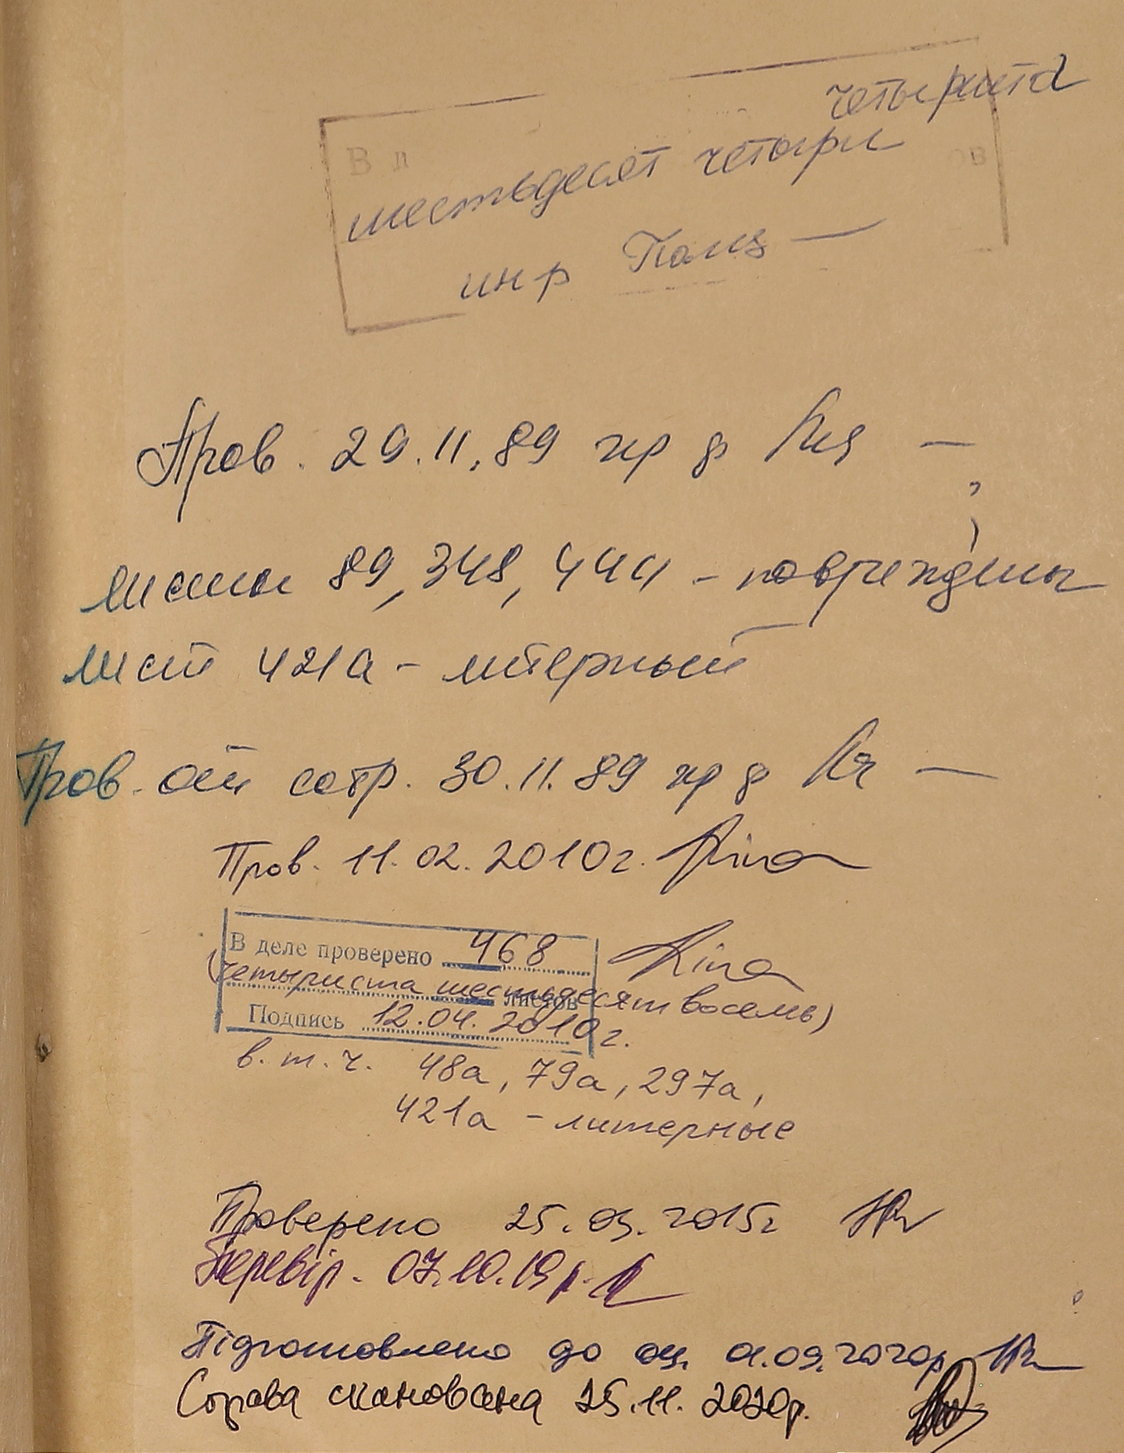 четыриста
В д
ов
шестьдесят четыри
Пров. 29.11.89
листы 89, 348, 444 - повреждены
лист 421а - литерный
Пров. 30.11.89
Пров. 11.02.2010г.
В деле проверено 468
(четыриста шестьдесят восемь)
листов
Подпись 12.04.2010г.
в. т. ч. 48а, 79а, 297а,
421а - литерные
Проверено 25.03.2015г
Перевір. 07.10.19р.
Підготовлено до 01.09.2020р
Справа сканована 25.11.2020р.